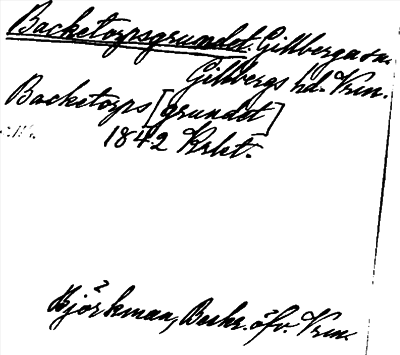 Backetorpsgrundet. Gillberga sn.
Gillbergs hd. Vrm.
Backetorps [grundet]
1842 Krkt.
Björkman, Beskr. öfv. Vrm.